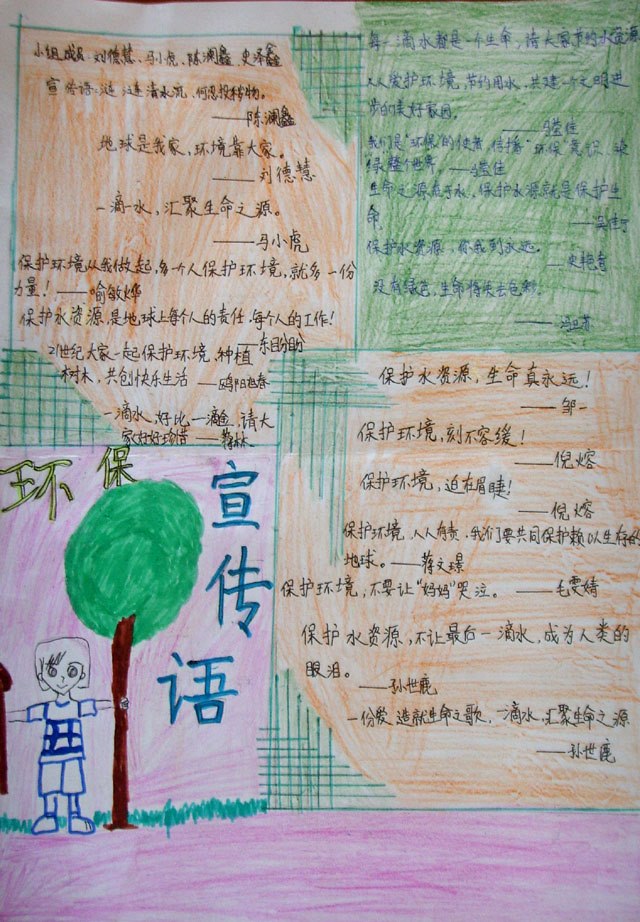 小组成员:刘德慧、马小虎、陈澜鑫、史泽鑫
宣传语:涟涟清水流,何忍投秽物。
——陈澜鑫
地球是我家,环境靠大家。
——刘德慧
一滴水,汇聚生命之源。
——马小虎
保护环境从我做起,多一个人保护环境,就多一份
力量!——喻敏烨
保护水资源,是地球上每个人的责任,每个人的工作!
21世纪大家一起保护环境,种植
树木,共创快乐生活——欧阳旭春
一滴水,好比一滴金,请大
家好好珍惜——蒋林
每一滴水都是一个生命,请大家节约水资源
人人爱护环境,节约用水,共建一个文明进
步的美好家园。
我们是“环保”的使者,传播“环保”
绿整个世界
生命之源在于水,保护水源就是保护生
命
保护水资源,你我到永远。
——史艳香
没有绿色,生命将失去色彩。
保护水资源,生命真永远!
——邹一
保护环境,刻不容缓!
——倪熔
保护环境,迫在眉睫!
——倪熔
保护环境,人人有责,我们要共同保护赖以生存的
地球。——蒋文璟
保护环境,不要让“妈妈”哭泣。——毛雯婧
保护水资源,不让最后一滴水,成为人类的
眼泪。
——孙世鹿
一份爱,造就生命之歌,一滴水,汇聚生命之源
——孙世鹿
环保
宣传语